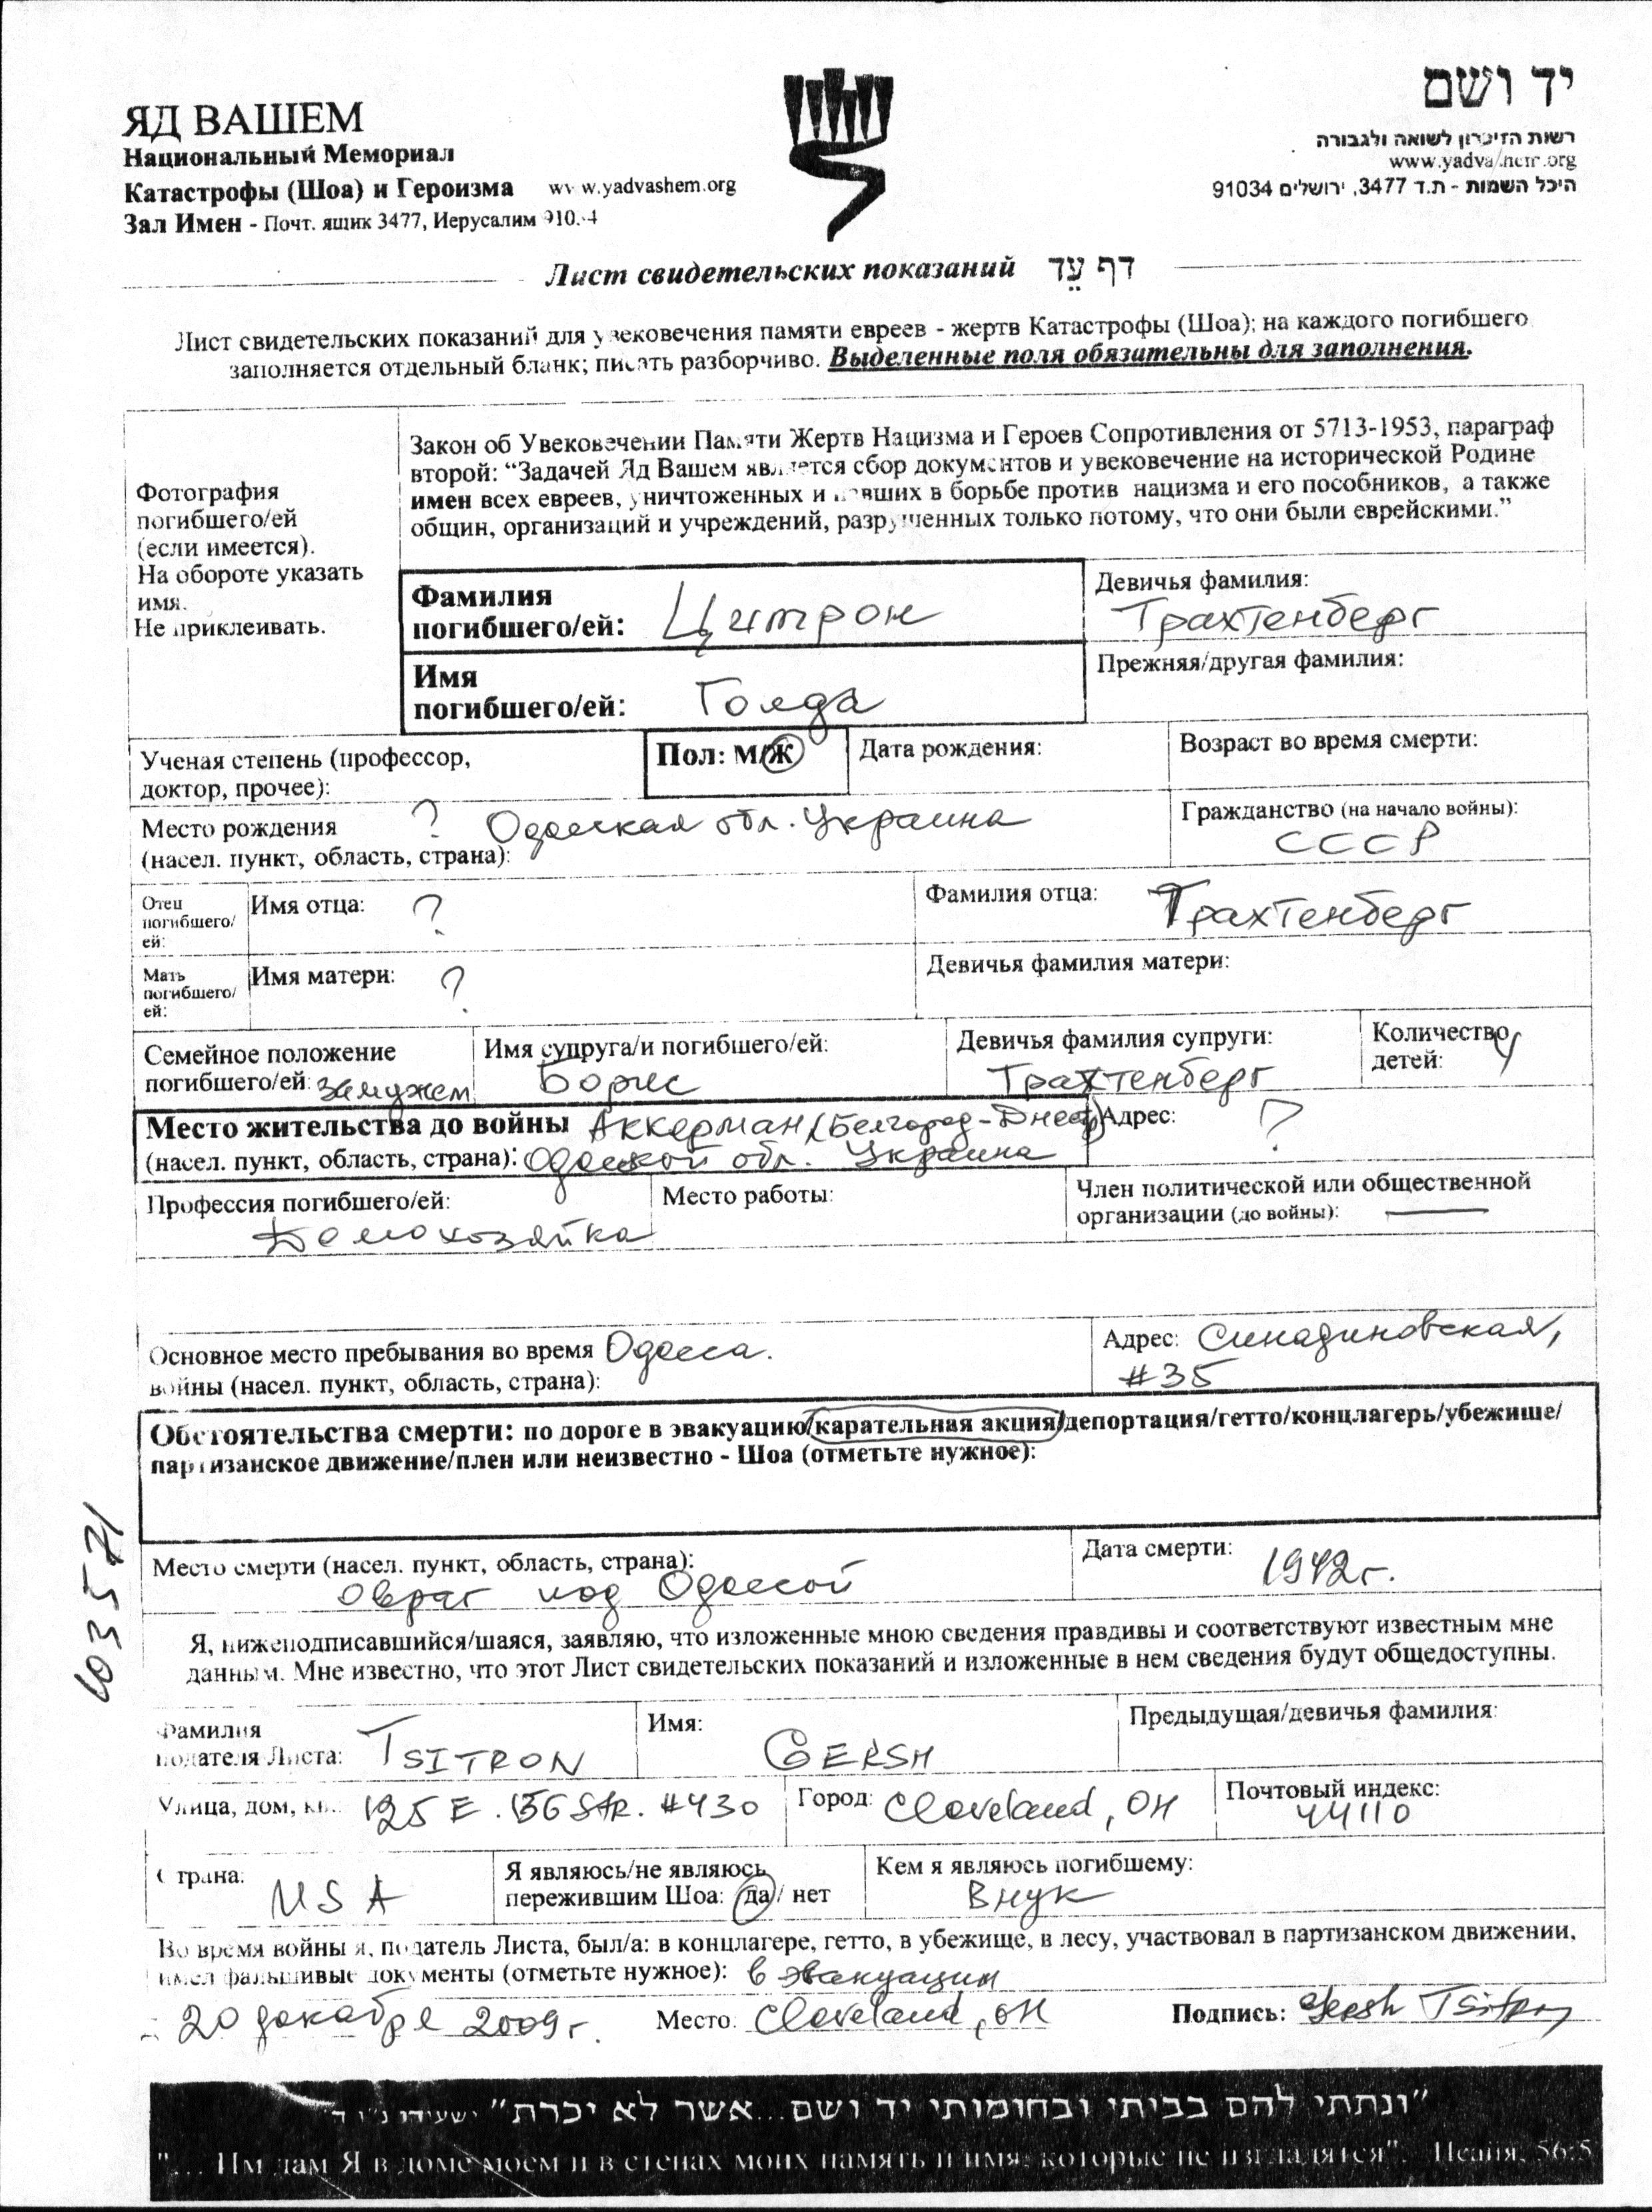 ЯД ВАШЕМ
Национальный Мемориал
Катастрофы (Шоа) и Героизма www.yadvashem.org
Зал Имен - Почт. ящик 3477, Иерусалим
יד ושם
רשות הזיכרון לשואה ולגבורה
www.yadvashem.org
היכל השמות - ת.ד 3477, ירושלים 91034
Лист свидетельских показаний דף עֵד
Лист свидетельских показаний для увековечения памяти евреев - жертв Катастрофы (Шоа); на каждого погибшего
заполняется отдельный бланк; писать разборчиво. Выделенные поля обязательны для заполнения.
Фотография
погибшего/ей
(если имеется).
На обороте указать
имя.
Не приклеивать.
Закон об Увековечении Памяти Жертв Нацизма и Героев Сопротивления от 5713-1953, параграф
второй: “Задачей Яд Вашем является сбор документов и увековечение на исторической Родине
имен всех евреев, уничтоженных и павших в борьбе против нацизма и его пособников, а также
общин, организаций и учреждений, разрушенных только потому, что они были еврейскими.”
Фамилия
погибшего/ей: Цитрон
Девичья фамилия:
Трахтенберг
Имя
погибшего/ей: Голда
Прежняя/другая фамилия:
Ученая степень (профессор,
доктор, прочее):
Пол: М/Ж
Дата рождения:
Возраст во время смерти:
Место рождения ? Одесская обл. Украина
(насел. пункт, область, страна):
Гражданство (на начало войны):
СССР
Отец
погибшего/
ей:
Имя отца: ?
Фамилия отца: Трахтенберг
Мать
погибшего/
ей:
Имя матери: ?
Девичья фамилия матери:
Семейное положение
погибшего/ей: замужем
Имя супруга/и погибшего/ей:
Борис
Девичья фамилия супруги:
Трахтенберг
Количество
детей: 4
Место жительства до войны Аккерман, (Белгород-Днестр)
(насел. пункт, область, страна): Одесской обл. Украина
Адрес: ?
Профессия погибшего/ей:
Домохозяйка
Место работы:
Член политической или общественной
организации (до войны): —
Основное место пребывания во время Одесса.
войны (насел. пункт, область, страна):
Адрес: Синадиновская,
#35
Обстоятельства смерти: по дороге в эвакуацию/карательная акция/депортация/гетто/концлагерь/убежище/
партизанское движение/плен или неизвестно - Шоа (отметьте нужное):
Место смерти (насел. пункт, область, страна):
Овраг под Одессой
Дата смерти:
1942г.
Я, нижеподписавшийся/шаяся, заявляю, что изложенные мною сведения правдивы и соответствуют известным мне
данным. Мне известно, что этот Лист свидетельских показаний и изложенные в нем сведения будут общедоступны.
Фамилия
подателя Листа: TSITRON
Имя:
GERSH
Предыдущая/девичья фамилия:
Улица, дом, кв.: 125 E. 156 STR. #430
Город: Cleveland, OH
Почтовый индекс:
44110
Страна:
USA
Я являюсь/не являюсь
пережившим Шоа: да / нет
Кем я являюсь погибшему:
Внук
Во время войны я, податель Листа, был/а: в концлагере, гетто, в убежище, в лесу, участвовал в партизанском движении,
имел фальшивые документы (отметьте нужное): в эвакуации
20 декабря 2009г.
Место: Cleveland, OH
Подпись: Gersh Tsitron
"ונתתי להם בביתי ובחומותי יד ושם...אשר לא יכרת" ישעיהו נ"ו ה'
"... Им дам Я в доме моем и в стенах моих память и имя, которые не изгладятся". Исайя, 56:5